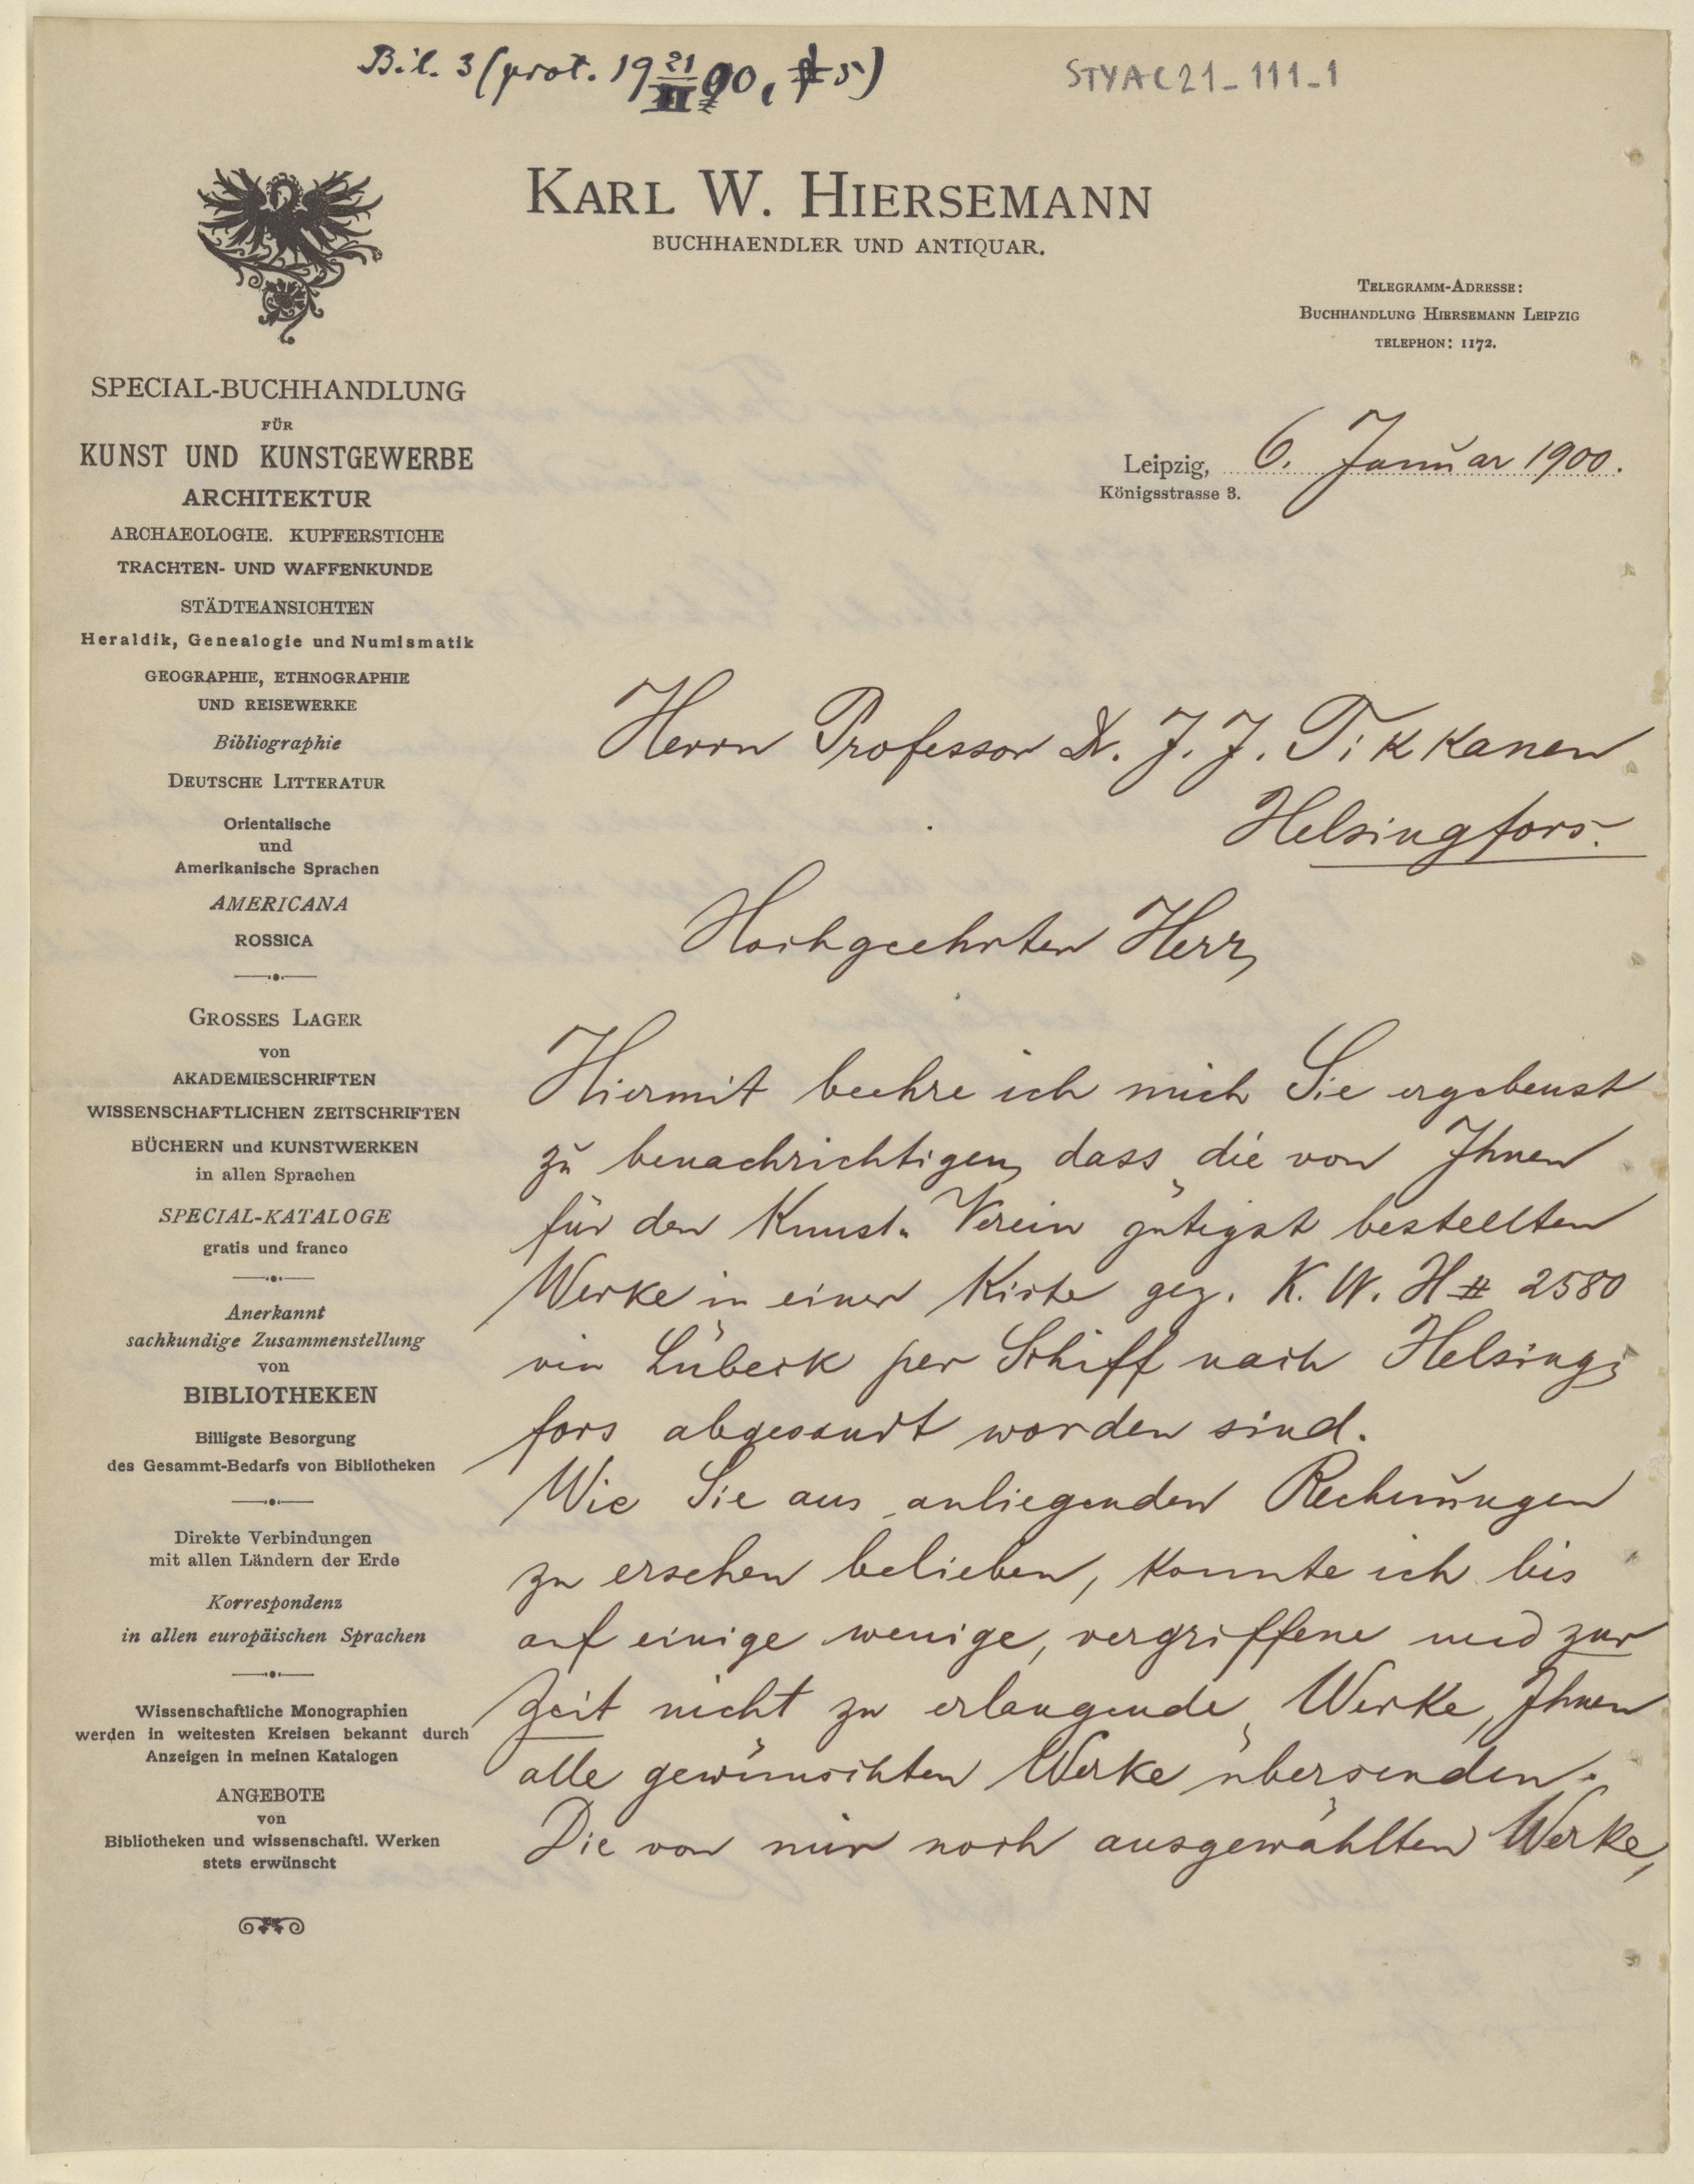 Bil. 3 (prot. 19 21/II 00, § 5)
STYAC21-111-1
KARL W. HIERSEMANN
BUCHHAENDLER UND ANTIQUAR.
TELEGRAMM-ADRESSE:
BUCHHANDLUNG HIERSEMANN LEIPZIG
TELEPHON: 1172.
Leipzig, 6. Januar 1900.
Königsstrasse 3.
SPECIAL-BUCHHANDLUNG
FÜR
KUNST UND KUNSTGEWERBE
ARCHITEKTUR
ARCHAEOLOGIE. KUPFERSTICHE
TRACHTEN- UND WAFFENKUNDE
STÄDTEANSICHTEN
Heraldik, Genealogie und Numismatik
GEOGRAPHIE, ETHNOGRAPHIE
UND REISEWERKE
Bibliographie
DEUTSCHE LITTERATUR
Orientalische
und
Amerikanische Sprachen
AMERICANA
ROSSICA
GROSSES LAGER
von
AKADEMIESCHRIFTEN
WISSENSCHAFTLICHEN ZEITSCHRIFTEN
BÜCHERN und KUNSTWERKEN
in allen Sprachen
SPECIAL-KATALOGE
gratis und franco
Anerkannt
sachkundige Zusammenstellung
von
BIBLIOTHEKEN
Billigste Besorgung
des Gesammt-Bedarfs von Bibliotheken
Direkte Verbindungen
mit allen Ländern der Erde
Korrespondenz
in allen europäischen Sprachen
Wissenschaftliche Monographien
werden in weitesten Kreisen bekannt durch
Anzeigen in meinen Katalogen
ANGEBOTE
von
Bibliotheken und wissenschaftl. Werken
stets erwünscht
Herrn Professor Dr. J. J. Tikkanen
Helsingfors.
Hochgeehrter Herr,
Hiermit beehre ich mich Sie ergebenst
zu benachrichtigen, dass die von Ihnen
für den Kunst-Verein gütigst bestellten
Werke in einer Kiste gez. K. W. H # 2580
via Lübeck per Schiff nach Helsing-
fors abgesandt worden sind.
Wie Sie aus anliegenden Rechnungen
zu ersehen belieben, konnte ich bis
auf einige wenige, vergriffene und zur
Zeit nicht zu erlangende Werke, Ihnen
alle gewünschten Werke übersenden.
Die von mir noch ausgewählten Werke,